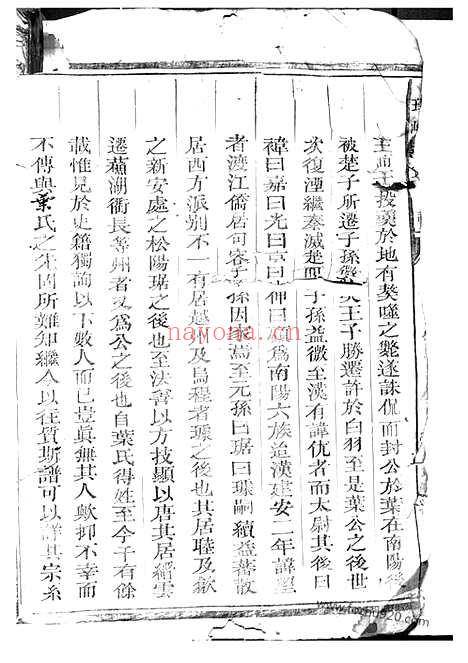 投羹於地有獒噬之斃遂誅侃而封公於葉在南陽後
被楚子所遷子孫 王子勝遷許於白羽至是葉公之後世
次復湮繼秦滅楚 子孫益微至漢有諱优者而太尉其後曰
禕曰嘉曰光曰京曰 曰 爲南陽六族迨漢建安二年諱望
者渡江僑居句容子孫因 焉至元孫曰琚曰璟嗣續益蕃散
居西方派别不一有居越州及烏程者璟之後也其居睦及歙
之新安處之松陽琚之後也至法善以方技顯以唐其居縉雲
遷蘇湖衢長等州者又爲公之後也自葉氏得姓至今千有餘
載惟見於史籍獨詢以下數人而已豈眞無其人歟抑不幸而
不傳與葉氏之先固所難知繼今以往質斯譜可以詳其宗系
nayona.cn